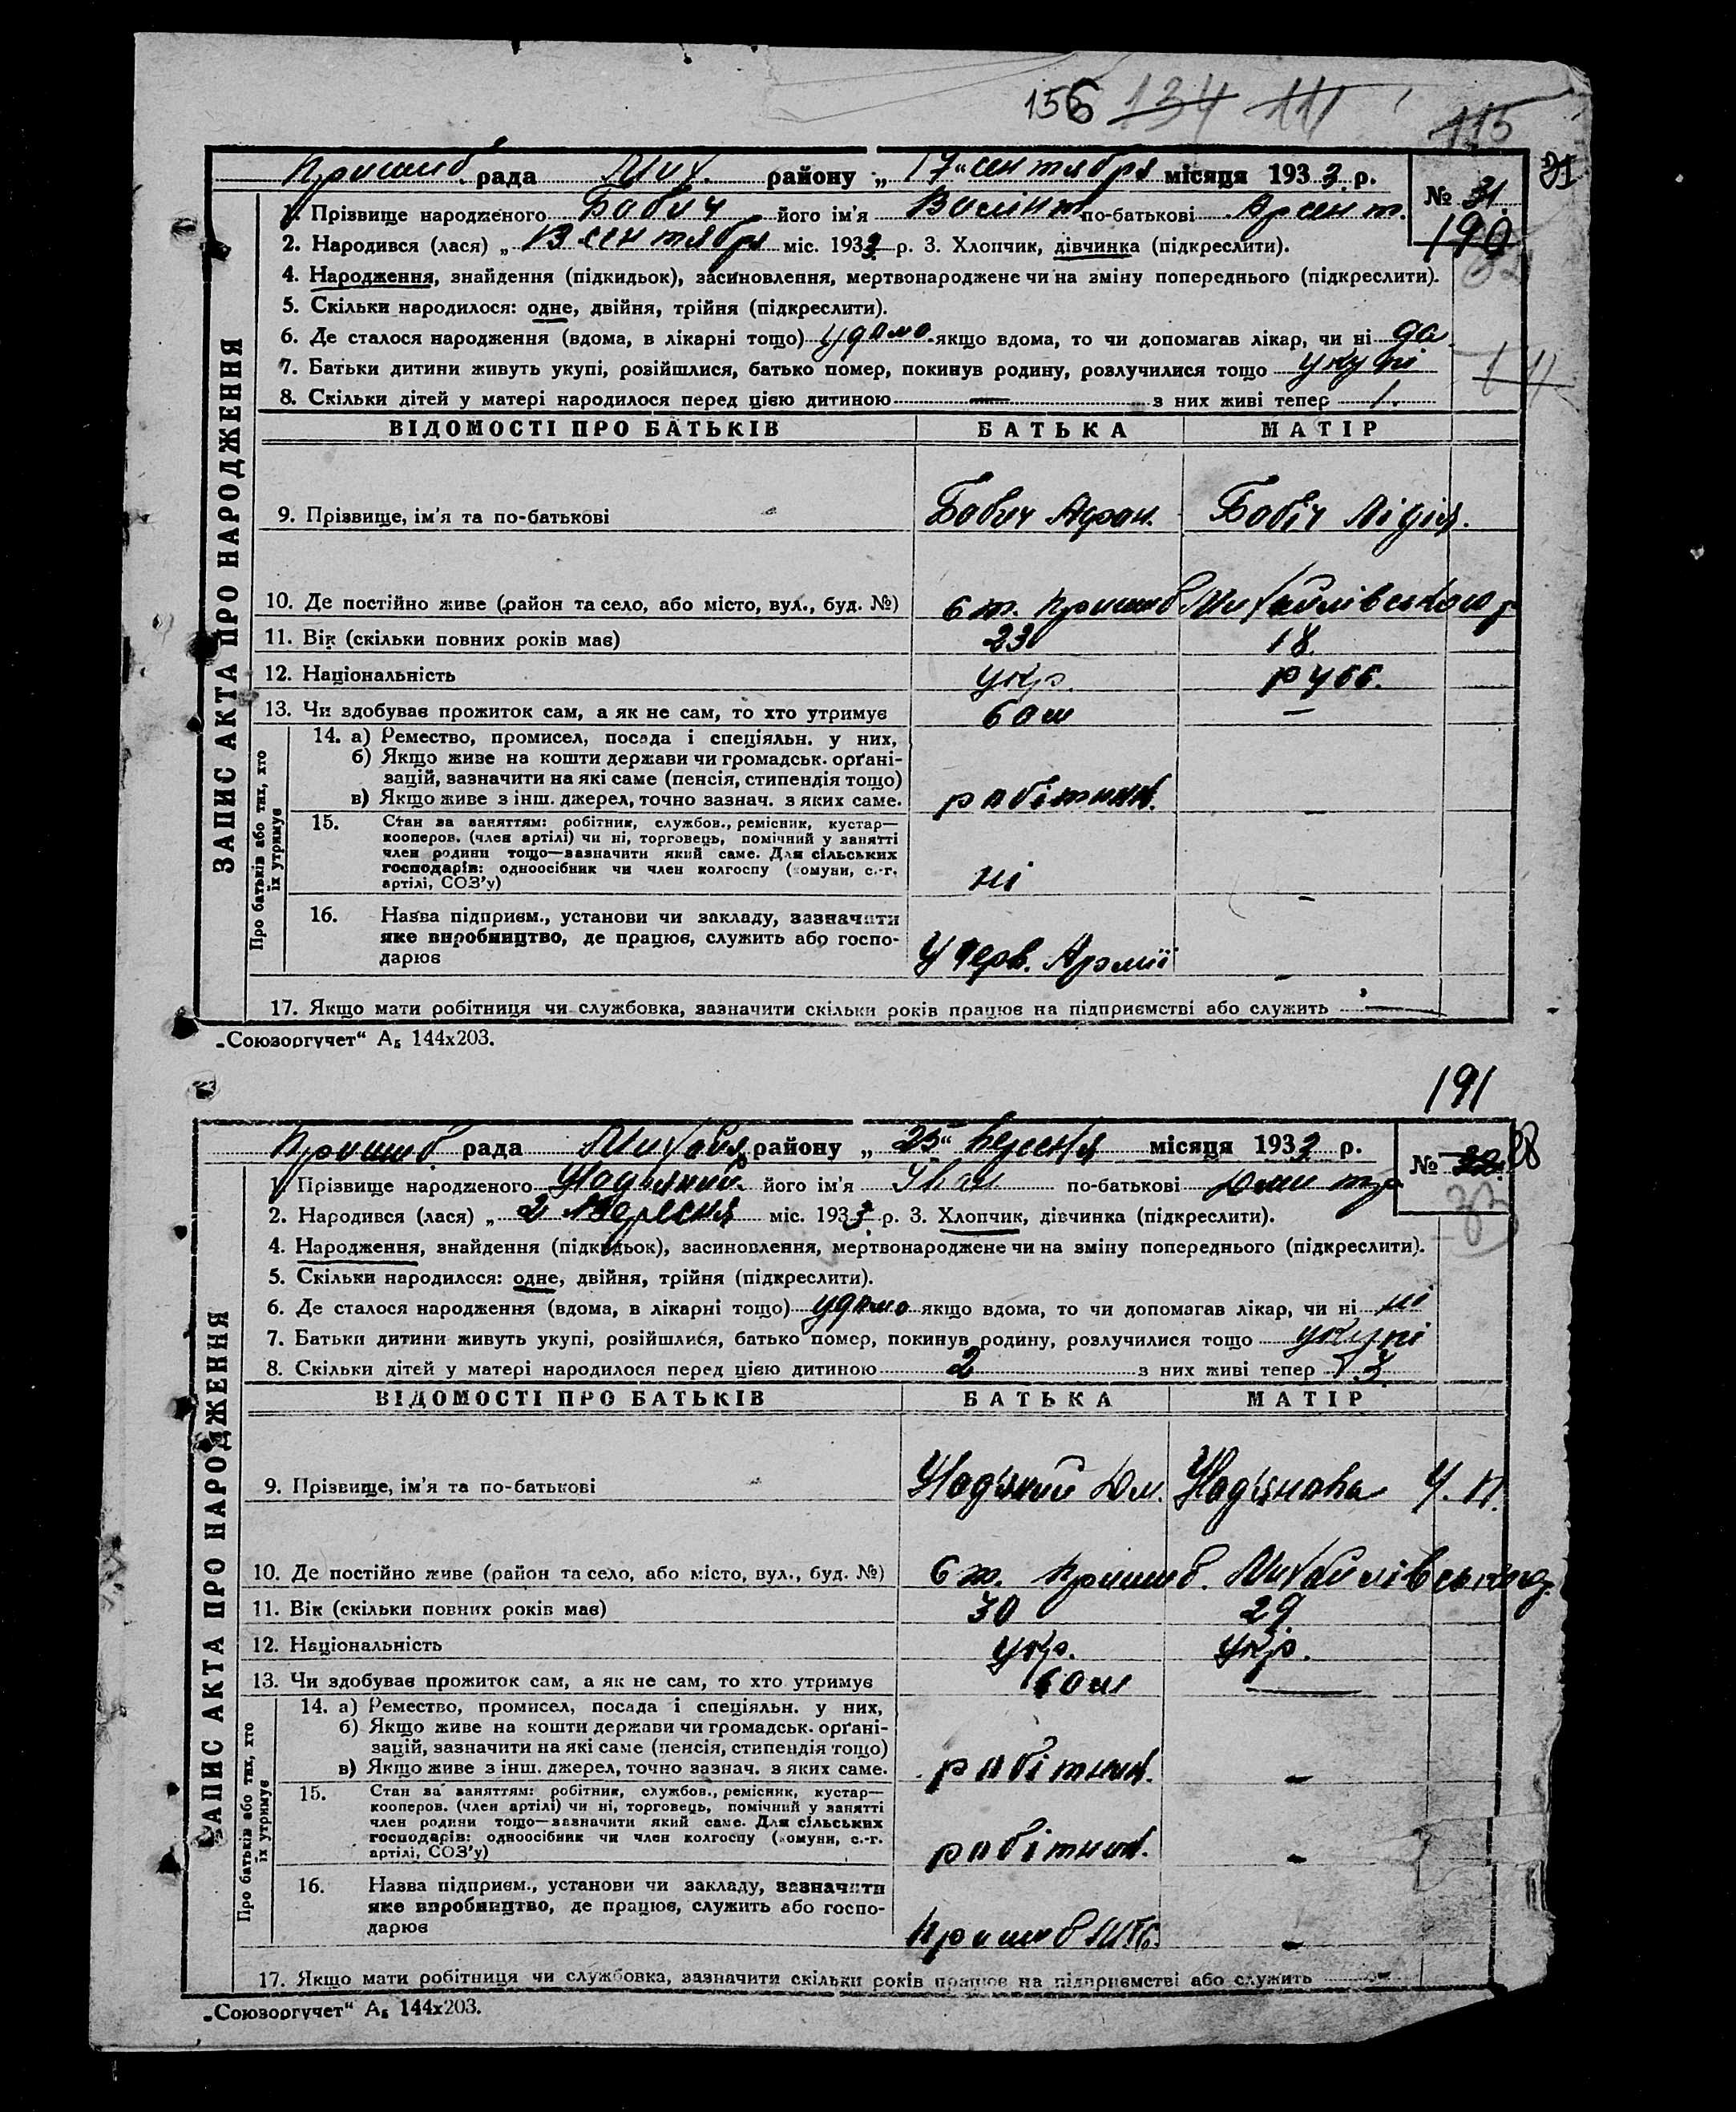 156 134 111
115
Пришиб рада Мих. району „17“ сентября місяця 1933 р.
№ 31.
31
190
1. Прізвище народженого Бабич його ім'я по-батькові Арсент.
2. Народився (лася) „ 13 сентября міс. 1933 р. 3. Хлопчик, дівчинка (підкреслити).
4. Народження, знайдення (підкидьок), засиновлення, мертвонароджене чи на зміну попереднього (підкреслити).
5. Скільки народилося: одне, двійня, трійня (підкреслити).
6. Де сталося народження (вдома, в лікарні тощо) удома якщо вдома, то чи допомагав лікар, чи ні да
7. Батьки дитини живуть укупі, розійшлися, батько помер, покинув родину, розлучилися тощо укупі
8. Скільки дітей у матері народилося перед цією дитиною — з них живі тепер 1.
ЗАПИС АКТА ПРО НАРОДЖЕННЯ
ВІДОМОСТІ ПРО БАТЬКІВ БАТЬКА МАТІР
9. Прізвище, ім'я та по-батькові Бабич Бабіч Лідія.
10. Де постійно живе (район та село, або місто, вул., буд. №) ст. Пришиб Михайлівського р
11. Вік (скільки повних років має) 23 18.
12. Національність укр. русс.
13. Чи здобуває прожиток сам, а як не сам, то хто утримує сам —
Про батьків або тих, хто їх утримує
14. а) Ремество, промисел, посада і спеціяльн. у них,
б) Якщо живе на кошти держави чи громадськ. орґані-
зацій, зазначити на які саме (пенсія, стипендія тощо)
в) Якщо живе з інш. джерел, точно зазнач. з яких саме. рабітник.
15. Стан за заняттям: робітник, службов., ремісник, кустар—
кооперов. (член артілі) чи ні, торговець, помічний у занятті
член родини тощо—зазначити який саме. Для сільських
господарів: одноосібник чи член колгоспу (комуни, с.-г.
артілі, СОЗ'у) ні
16. Назва підприєм., установи чи закладу, зазначити
яке виробництво, де працює, служить або госпо-
дарює У Черв. Армії
17. Якщо мати робітниця чи службовка, зазначити скільки років працює на підприємстві або служить —
„Союзоргучет“ А5 144х203.
191
Пришиб. рада Михайл. району „25“ вересня місяця 1933 р.
№ 32. 38
1. Прізвище народженого його ім'я Іван по-батькові Дмитр
2. Народився (лася) „ 2 Вересня міс. 1933 р. 3. Хлопчик, дівчинка (підкреслити).
4. Народження, знайдення (підкидьок), засиновлення, мертвонароджене чи на зміну попереднього (підкреслити).
5. Скільки народилося: одне, двійня, трійня (підкреслити).
6. Де сталося народження (вдома, в лікарні тощо) удома якщо вдома, то чи допомагав лікар, чи ні ні
7. Батьки дитини живуть укупі, розійшлися, батько помер, покинув родину, розлучилися тощо укупі
8. Скільки дітей у матері народилося перед цією дитиною 2 з них живі тепер 3
ЗАПИС АКТА ПРО НАРОДЖЕННЯ
ВІДОМОСТІ ПРО БАТЬКІВ БАТЬКА МАТІР
9. Прізвище, ім'я та по-батькові Дм. У. П.
10. Де постійно живе (район та село, або місто, вул., буд. №) ст. Пришиб. Михайлівського р.
11. Вік (скільки повних років має) 30 29
12. Національність укр. укр.
13. Чи здобуває прожиток сам, а як не сам, то хто утримує сам —
Про батьків або тих, хто їх утримує
14. а) Ремество, промисел, посада і спеціяльн. у них,
б) Якщо живе на кошти держави чи громадськ. орґані-
зацій, зазначити на які саме (пенсія, стипендія тощо)
в) Якщо живе з інш. джерел, точно зазнач. з яких саме. рабітник. —
15. Стан за заняттям: робітник, службов., ремісник, кустар—
кооперов. (член артілі) чи ні, торговець, помічний у занятті
член родини тощо—зазначити який саме. Для сільських
господарів: одноосібник чи член колгоспу (комуни, с.-г.
артілі, СОЗ'у) рабітник. —
16. Назва підприєм., установи чи закладу, зазначити
яке виробництво, де працює, служить або госпо-
дарює Пришиб —
17. Якщо мати робітниця чи службовка, зазначити скільки років працює на підприємстві або служить —
„Союзоргучет“ А5 144х203.